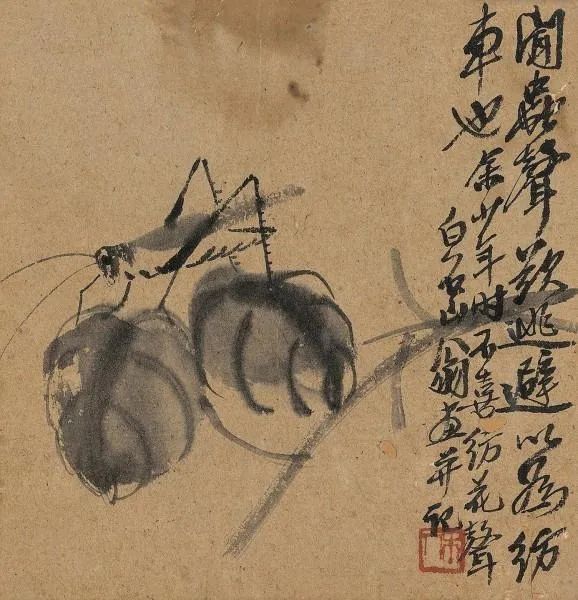 闻虫聲欲逃避以为纺
車也余少年时不喜纺花聲
白石山翁画并记